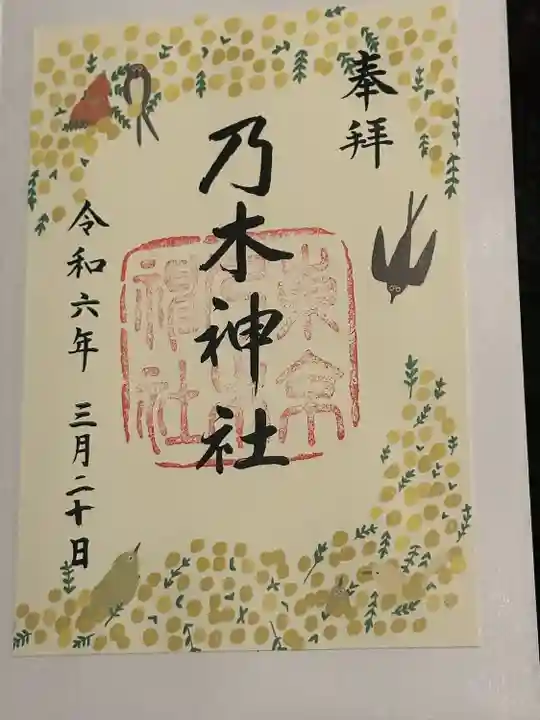 奉拝
乃木神社
東京乃木神社
令和六年 三月二十日